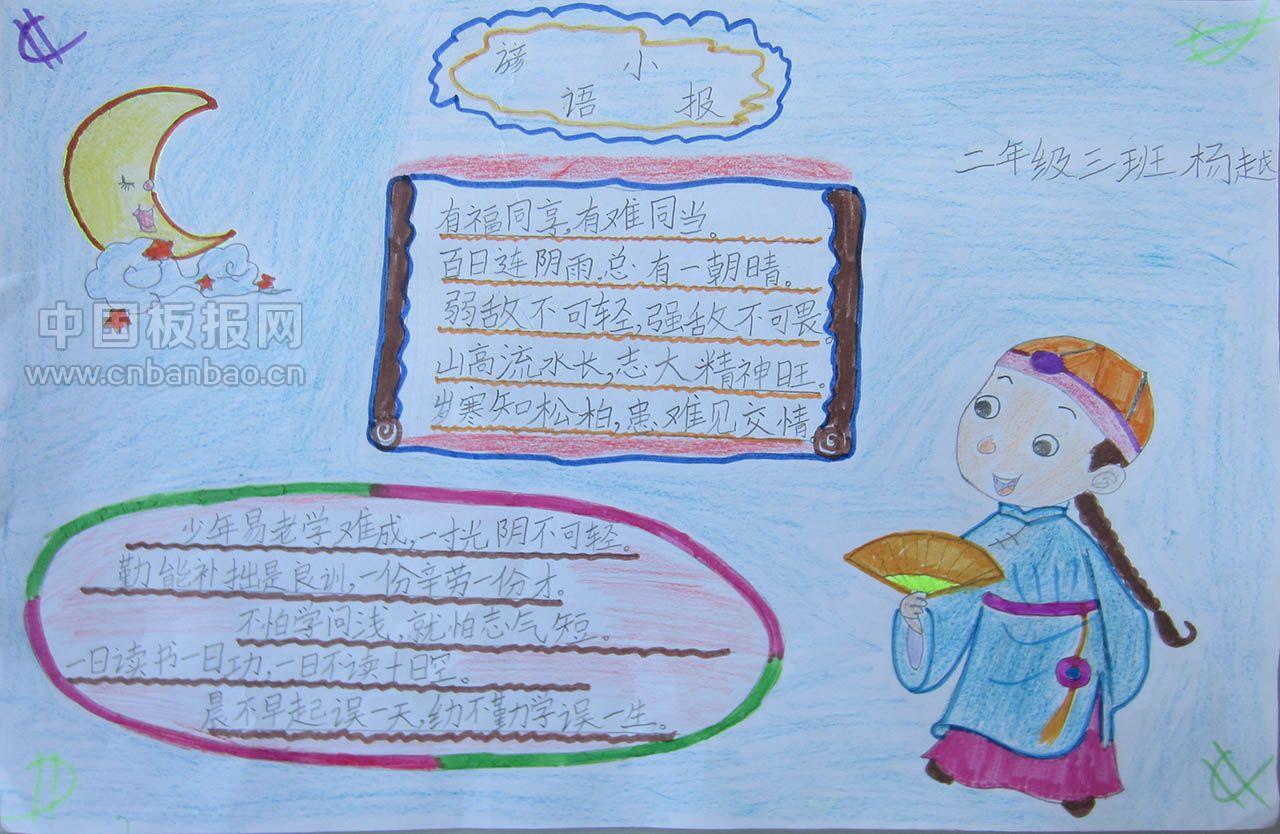 谚语小报
二年级三班 杨越
有福同享,有难同当。
百日连阴雨,总有一朝晴。
弱敌不可轻,强敌不可畏。
山高流水长,志大精神旺。
岁寒知松柏,患难见交情。
少年易老学难成,一寸光阴不可轻。
勤能补拙是良训,一份辛劳一份才。
不怕学问浅,就怕志气短。
一日读书一日功,一日不读十日空。
晨不早起误一天,幼不勤学误一生。
中国板报网
www.cnbanbao.cn